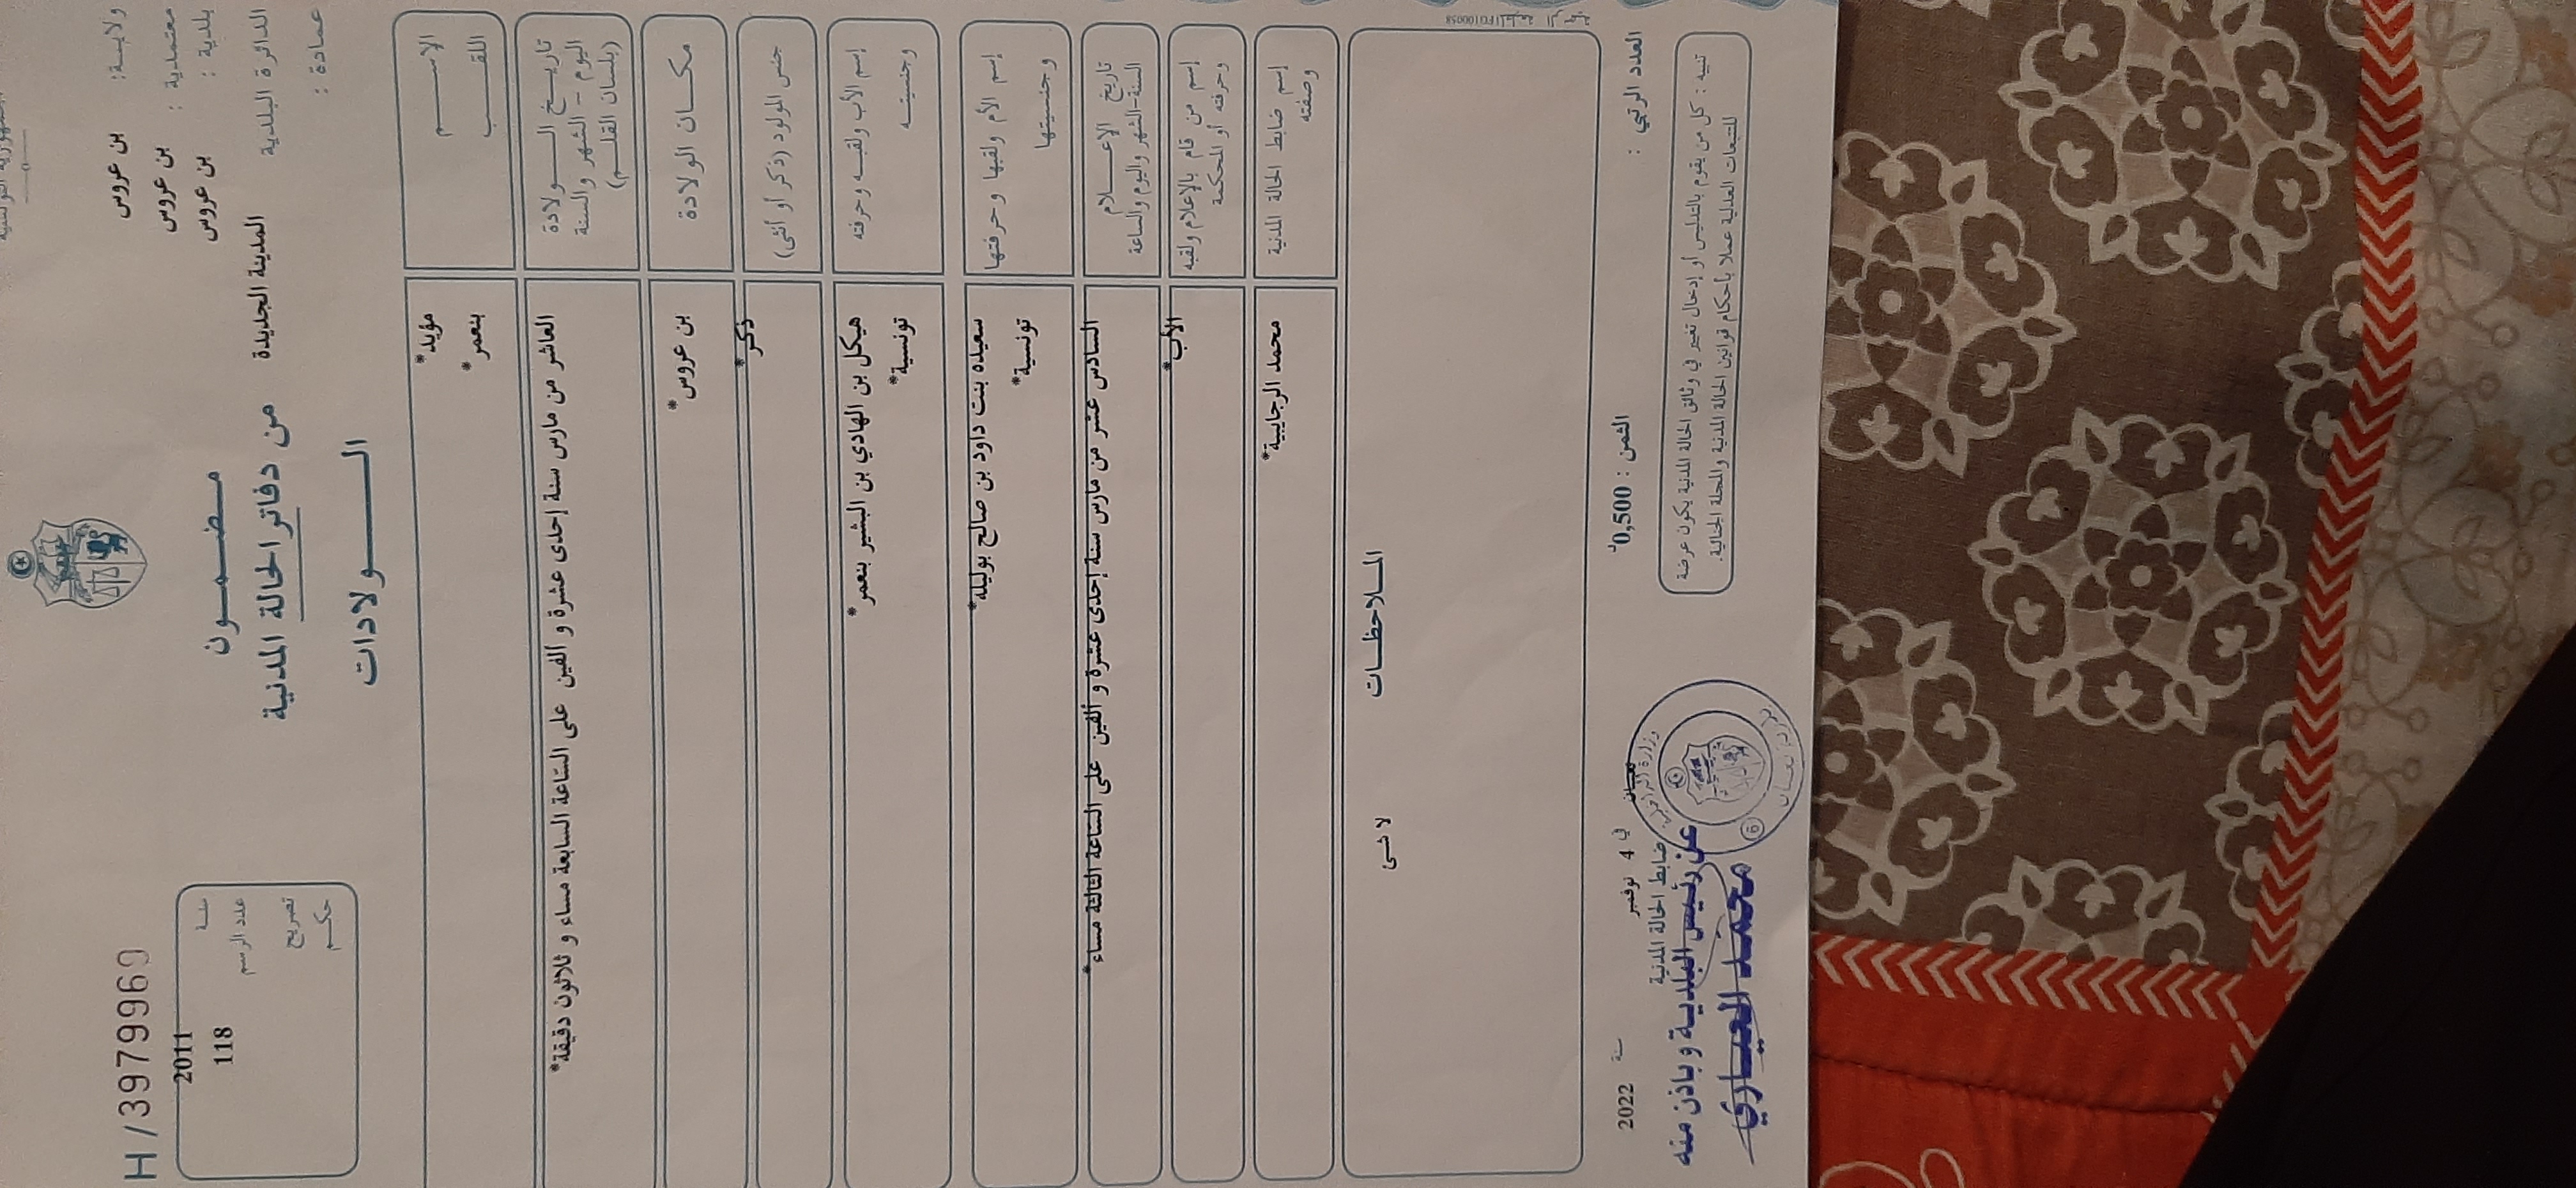 الجمهورية التونسية
ولايــة: بن عروس
معتمدية : بن عروس
بلدية : بن عروس
الدائرة البلدية المدينة الجديدة
عمادة :
مضمــون
من دفاتر الحالة المدنية
الــولادات
H/3979969
سنة 2011
عدد الرسم 118
تصريح
حكم
الاســم مؤيد*
اللقــب بنعمر*
تاريــخ الــولادة
اليوم - الشهر والسنة
(بلسان القلــم)
العاشر من مارس سنة إحدى عشرة و الفين على الساعة السابعة مساء و ثلاثون دقيقة*
مكــان الولادة بن عروس*
جنس المولود (ذكر أو أنثى) ذكر*
إسم الأب ولقبــه وحرفته هيكل بن الهادي بن البشير بنعمر*
وجنسيتــه تونسية*
إسم الأم ولقبها وحرفتها سعيده بنت داود بن صالح بوليله*
وجنسيتها تونسية*
تاريخ الإعــلام
السنة-الشهر واليوم والساعة
السادس عشر من مارس سنة إحدى عشرة و ألفين على الساعة الثالثة مساء*
إسم من قام بالإعلام ولقبه
وحرفته أو المحكمة
الأب*
إسم ضابط الحالة المدنية
وصفته
محمد الرجايبية*
الملاحظــات
لا شئ
العدد الرتبي :
الثمن : 0,500د
في 4 نوفمبر سنة 2022
ضابط الحالة المدنية
عن رئيس البلدية و باذن منه
محمد العيــاري
تنبيه : كل من يقوم بالتدليس أو إدخال تغيير في وثائق الحالة المدنية يكون عرضة
للتتبعات العدلية عملا بأحكام قوانين الحالة المدنية والمجلة الجنائية.